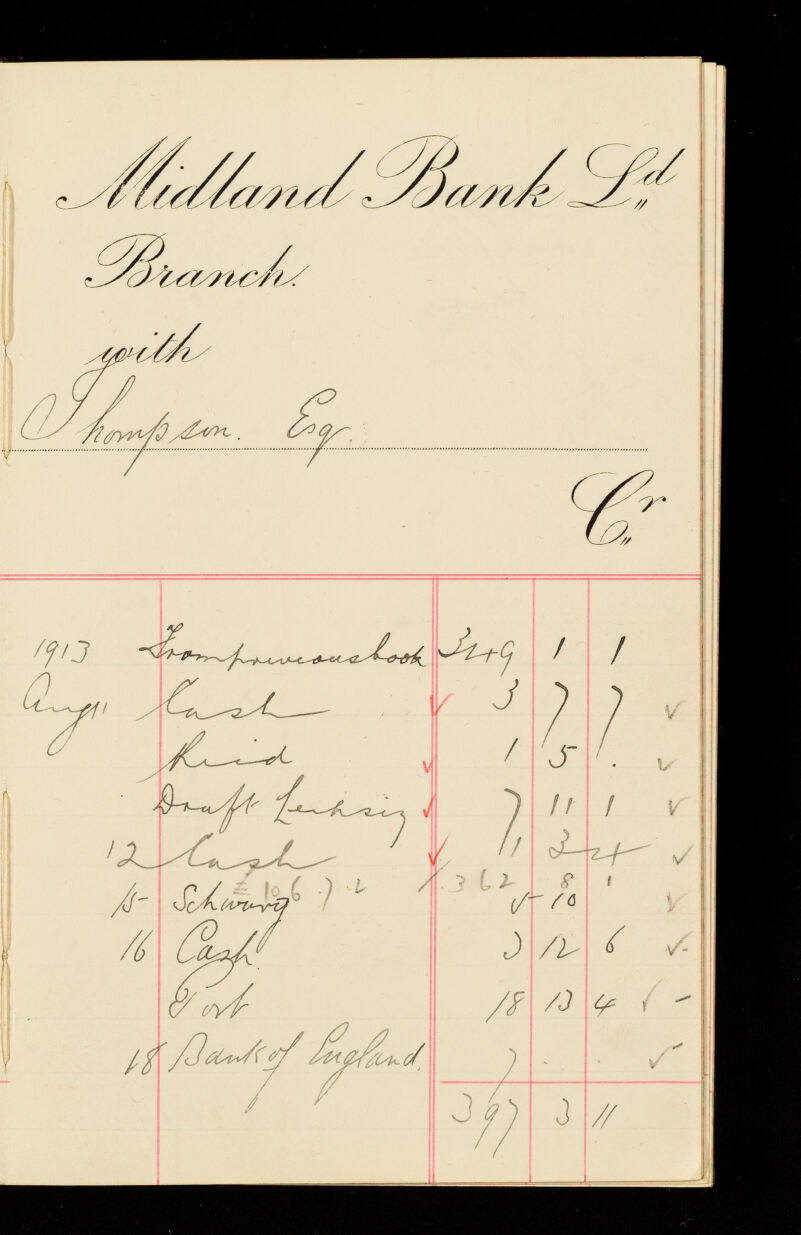 Midland Bank Ld
Branch.
with
Thompson. Esq.
Cr
1913 From previous book 349 1 1
Aug 11 Cash ✓ 3 7 7 ✓
Reid ✓ 1 5 . ✓
Draft Leipsig ✓ 7 11 1 ✓
12 Cash ✓ 1 3 4 ✓
£106.7.2 362 8 1
15 Schwarz 5 10 ✓
16 Cash 3 12 6 ✓-
18 13 4 ✓ -
18 Bank of England. 7 . . ✓
397 3 11